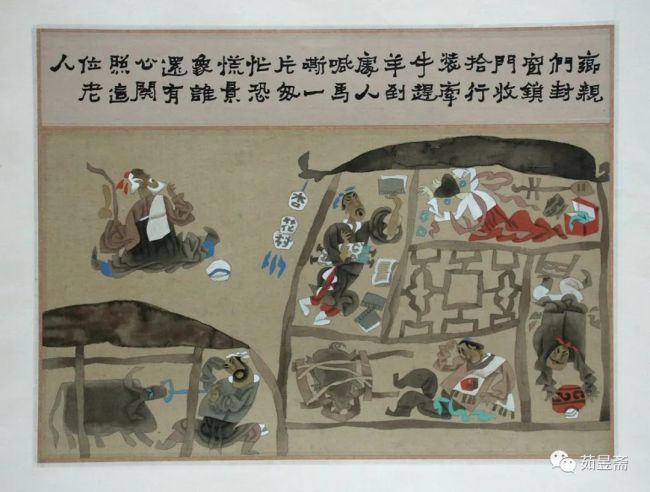 鄉親
們封
窗鎖
門收
拾行
裝牽
牛趕
羊到
處人
喊馬
嘶一
片匆
忙恐
慌景
象誰
還有
心關
照這
位老
人
杏花村
茹昱斋